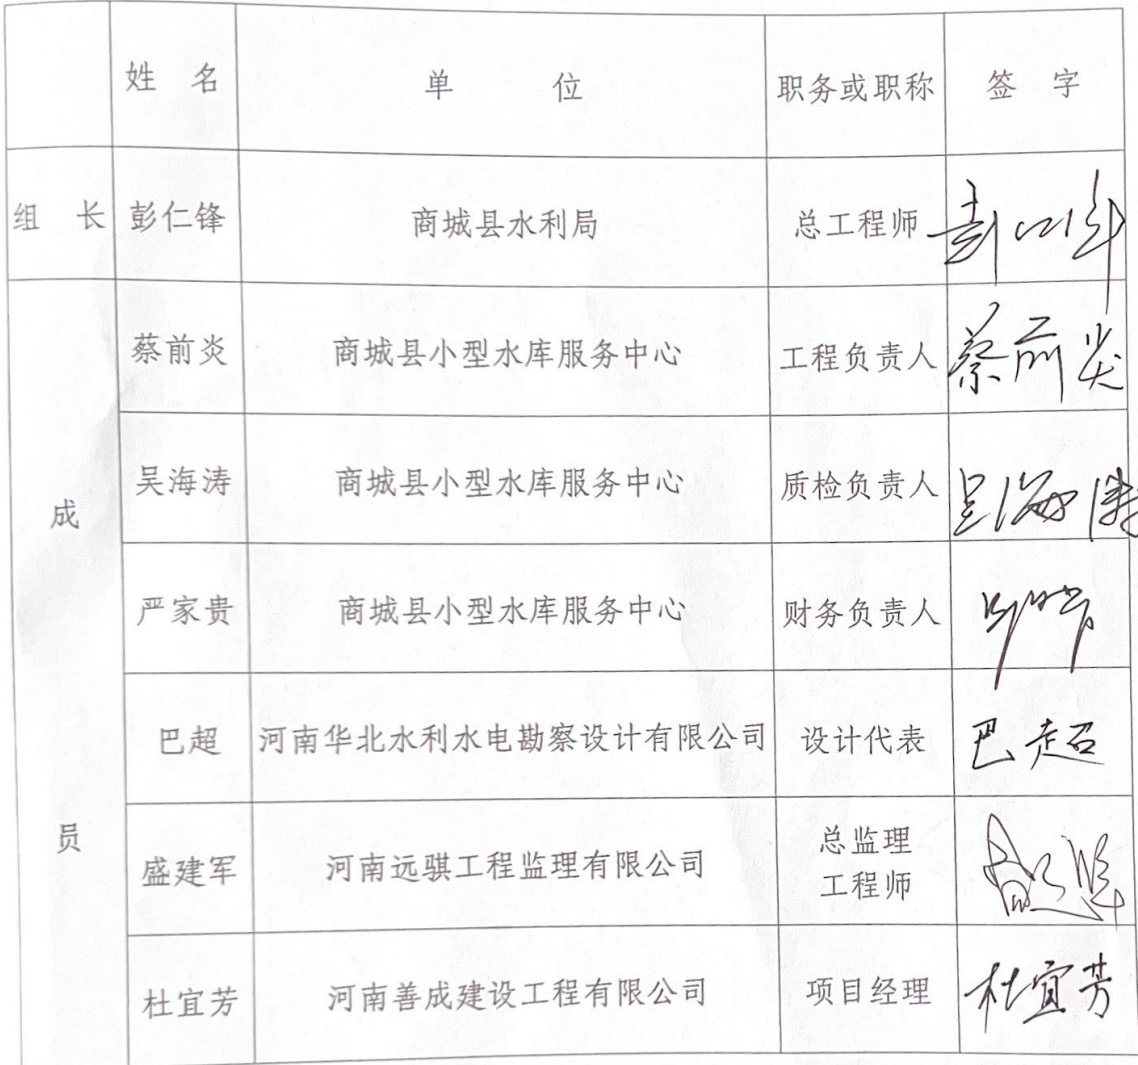 姓 名 单 位 职务或职称 签 字
组 长 彭仁锋 商城县水利局 总工程师
蔡前炎 商城县小型水库服务中心 工程负责人 蔡前炎
吴海涛 商城县小型水库服务中心 质检负责人 吴海涛
成
严家贵 商城县小型水库服务中心 财务负责人
巴超 河南华北水利水电勘察设计有限公司 设计代表 巴超
员
盛建军 河南远骐工程监理有限公司 总监理
工程师
杜宜芳 河南善成建设工程有限公司 项目经理 杜宜芳